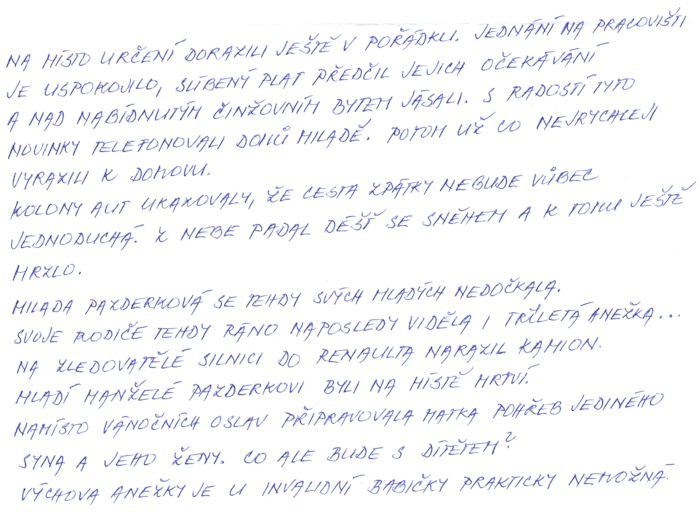 NA MÍSTO URČENÍ DORAZILI JEŠTĚ V POŘÁDKU. JEDNÁNÍ NA PRACOVIŠTI
JE USPOKOJILO, SLÍBENÝ PLAT PŘEDČIL JEJICH OČEKÁVÁNÍ
A NAD NABÍDNUTÝM ČINŽOVNÍM BYTEM JÁSALI. S RADOSTÍ TYTO
NOVINKY TELEFONOVALI DOMŮ MILADĚ. POTOM UŽ CO NEJRYCHLEJI
VYRAZILI K DOMOVU.
KOLONY AUT UKAZOVALY, ŽE CESTA ZPÁTKY NEBUDE VŮBEC
JEDNODUCHÁ. Z NEBE PADAL DÉŠŤ SE SNĚHEM A K TOMU JEŠTĚ
MRZLO.
MILADA PAZDERKOVÁ SE TEHDY SVÝCH MLADÝCH NEDOČKALA.
SVOJE RODIČE TEHDY RÁNO NAPOSLEDY VIDĚLA I TŘÍLETÁ ANEŽKA...
NA ZLEDOVATĚLÉ SILNICI DO RENAULTA NARAZIL KAMION.
MLADÍ MANŽELÉ PAZDERKOVI BYLI NA MÍSTĚ MRTVÍ.
NAMÍSTO VÁNOČNÍCH OSLAV PŘIPRAVOVALA MATKA POHŘEB JEDINÉHO
SYNA A JEHO ŽENY. CO ALE BUDE S DÍTĚTEM?
VÝCHOVA ANEŽKY JE U INVALIDNÍ BABIČKY PRAKTICKY NEMOŽNÁ.